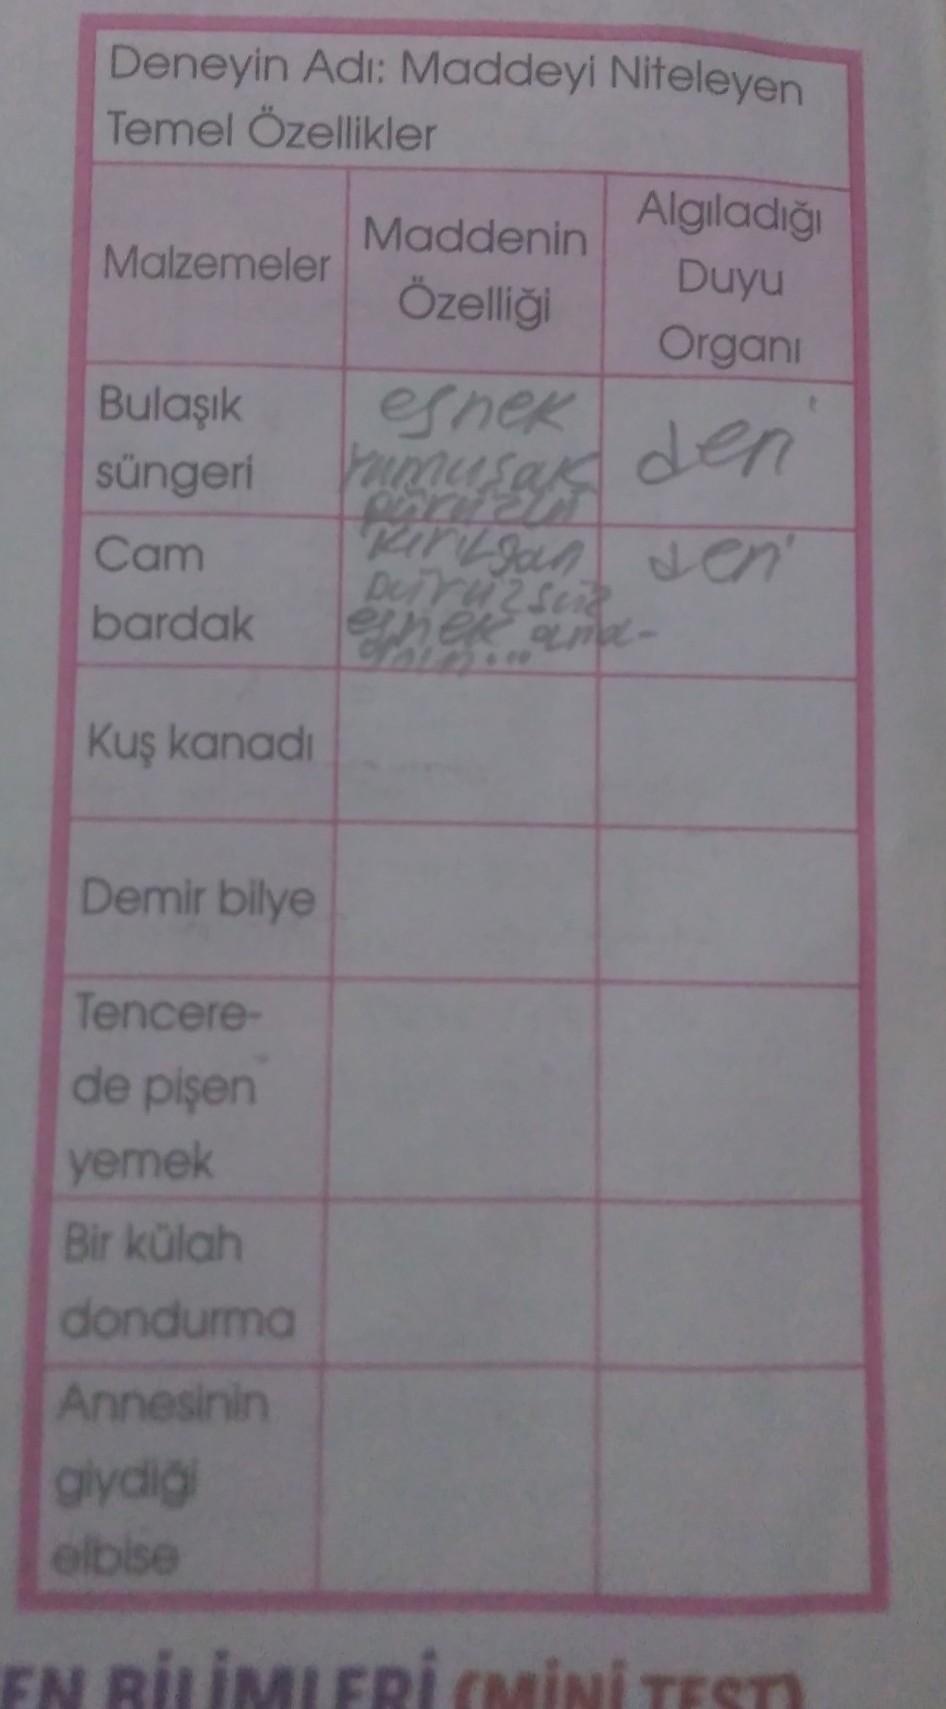 Deneyin Adı: Maddeyi Niteleyen
Temel Özellikler
Malzemeler
Maddenin
Özelliği
Algıladığı
Duyu
Organı
Bulaşık
süngeri
esnek
yumuşak
pürüzlü
deri
Cam
bardak
kırılgan
pürüzsüz
esnek olma-
deri
Kuş kanadı
Demir bilye
Tencere-
de pişen
yemek
Bir külah
dondurma
Annesinin
giydiği
elbise
EN BİLİMLERİ (MİNİ TEST)